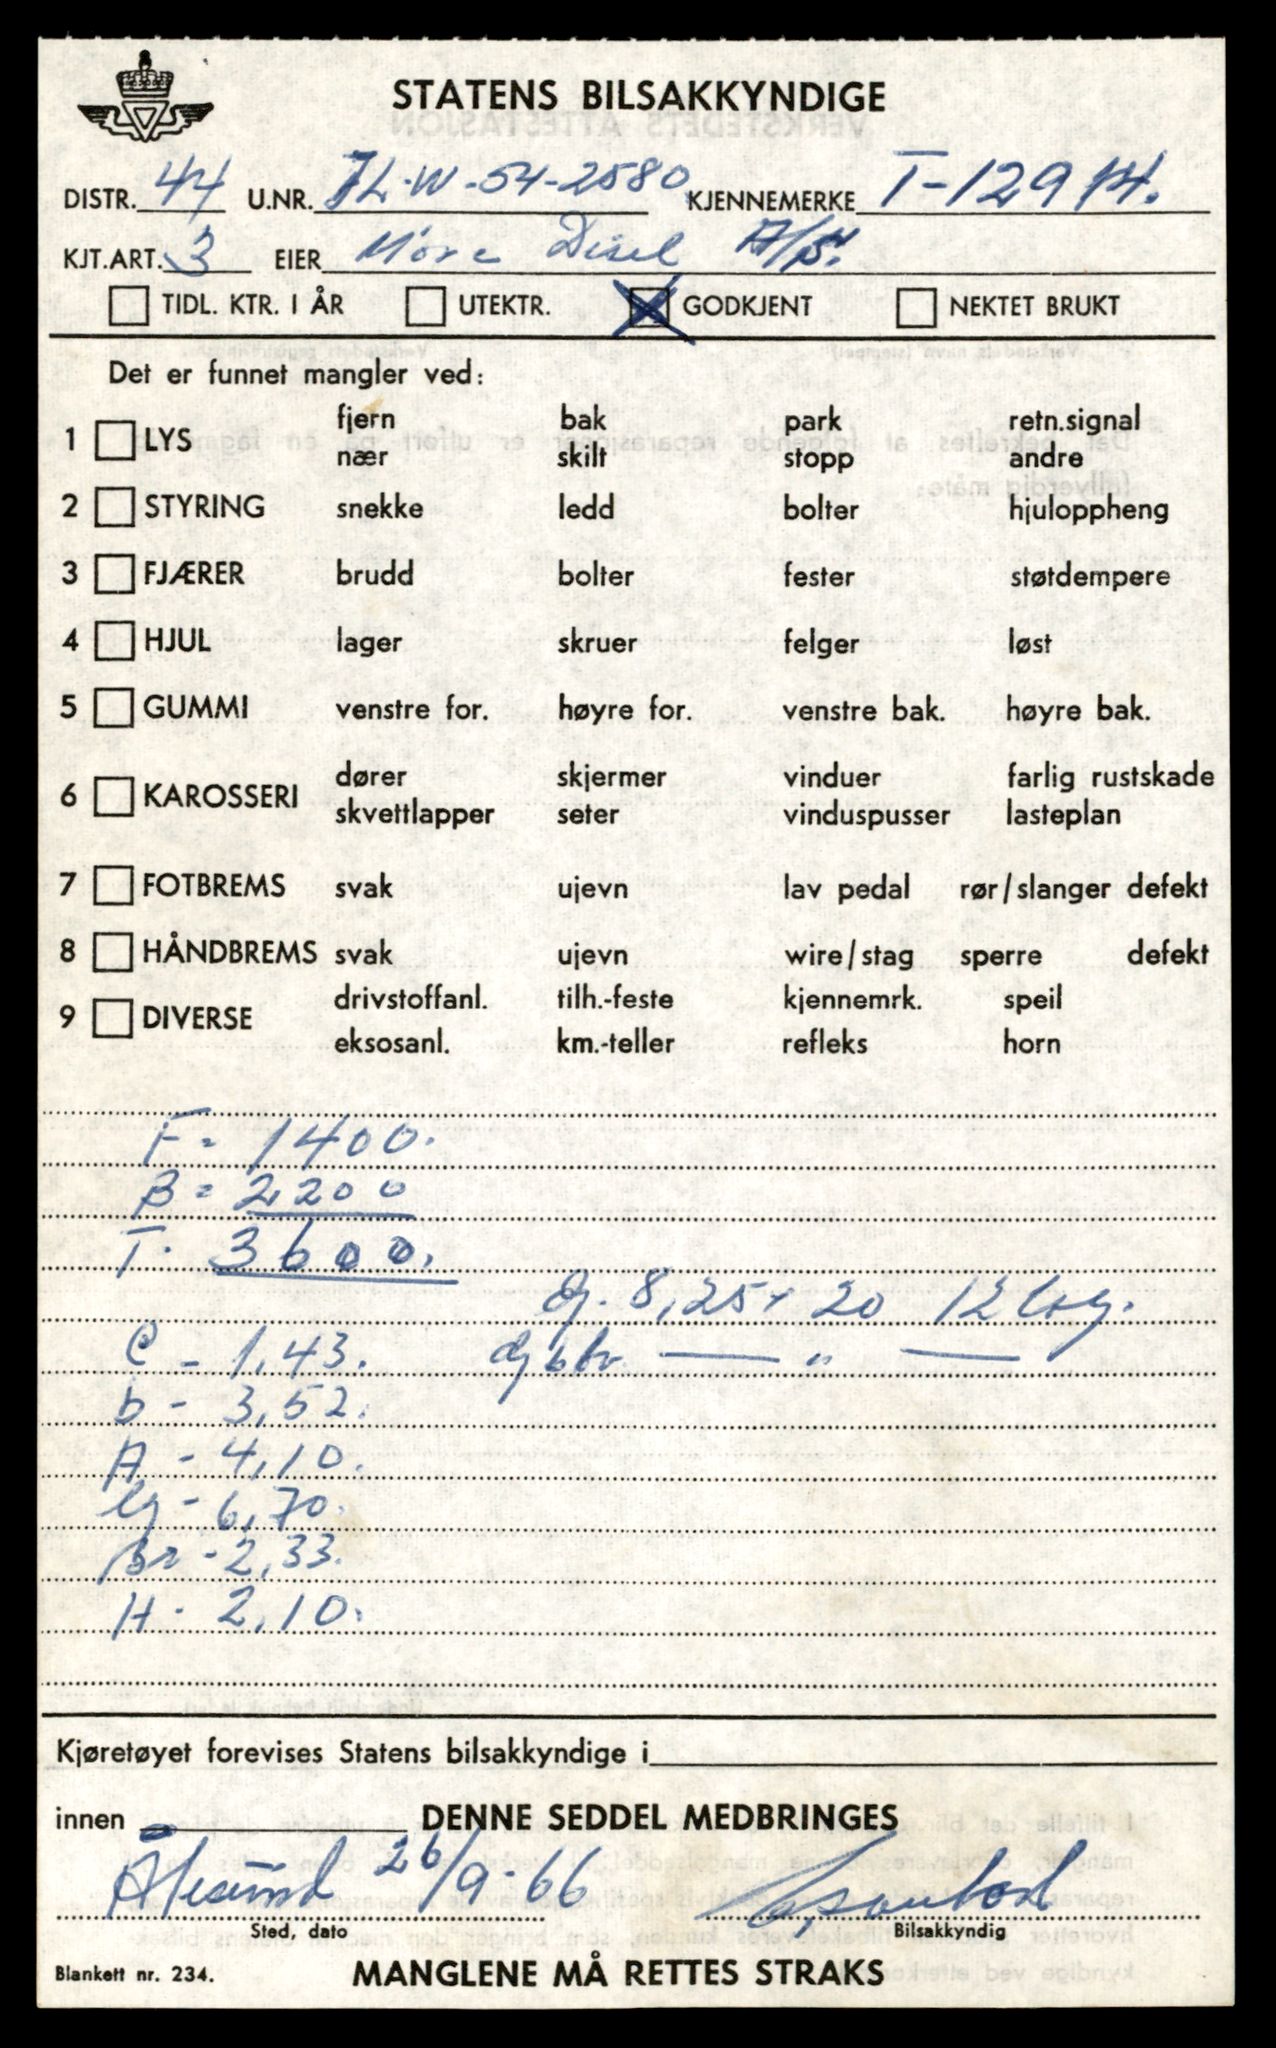 STATENS BILSAKKYNDIGE
DISTR. 44 U.NR. JL-W-54-2580 KJENNEMERKE T-129
KJT.ART. 3 EIER Møre Disel A/S.
TIDL. KTR. I ÅR UTEKTR. GODKJENT NEKTET BRUKT
Det er funnet mangler ved:
1 LYS fjern bak park retn.signal
nær skilt stopp andre
2 STYRING snekke ledd bolter hjuloppheng
3 FJÆRER brudd bolter fester støtdempere
4 HJUL lager skruer felger løst
5 GUMMI venstre for. høyre for. venstre bak. høyre bak.
6 KAROSSERI dører skjermer vinduer farlig rustskade
skvettlapper seter vinduspusser lasteplan
7 FOTBREMS svak ujevn lav pedal rør/slanger defekt
8 HÅNDBREMS svak ujevn wire/stag sperre defekt
9 DIVERSE drivstoffanl. tilh.-feste kjennemrk. speil
eksosanl. km.-teller refleks horn
F = 1400.
B = 2200
T. 3600.
Dj. 8,25 x 20 12 lag.
C - 1,43. — " —
b - 3,52.
A - 4,10.
lg - 6,70.
Br - 2,33.
H - 2,10.
Kjøretøyet forevises Statens bilsakkyndige i
innen DENNE SEDDEL MEDBRINGES
Ålesund 26/9-66
Sted, dato Bilsakkyndig
Blankett nr. 234. MANGLENE MÅ RETTES STRAKS